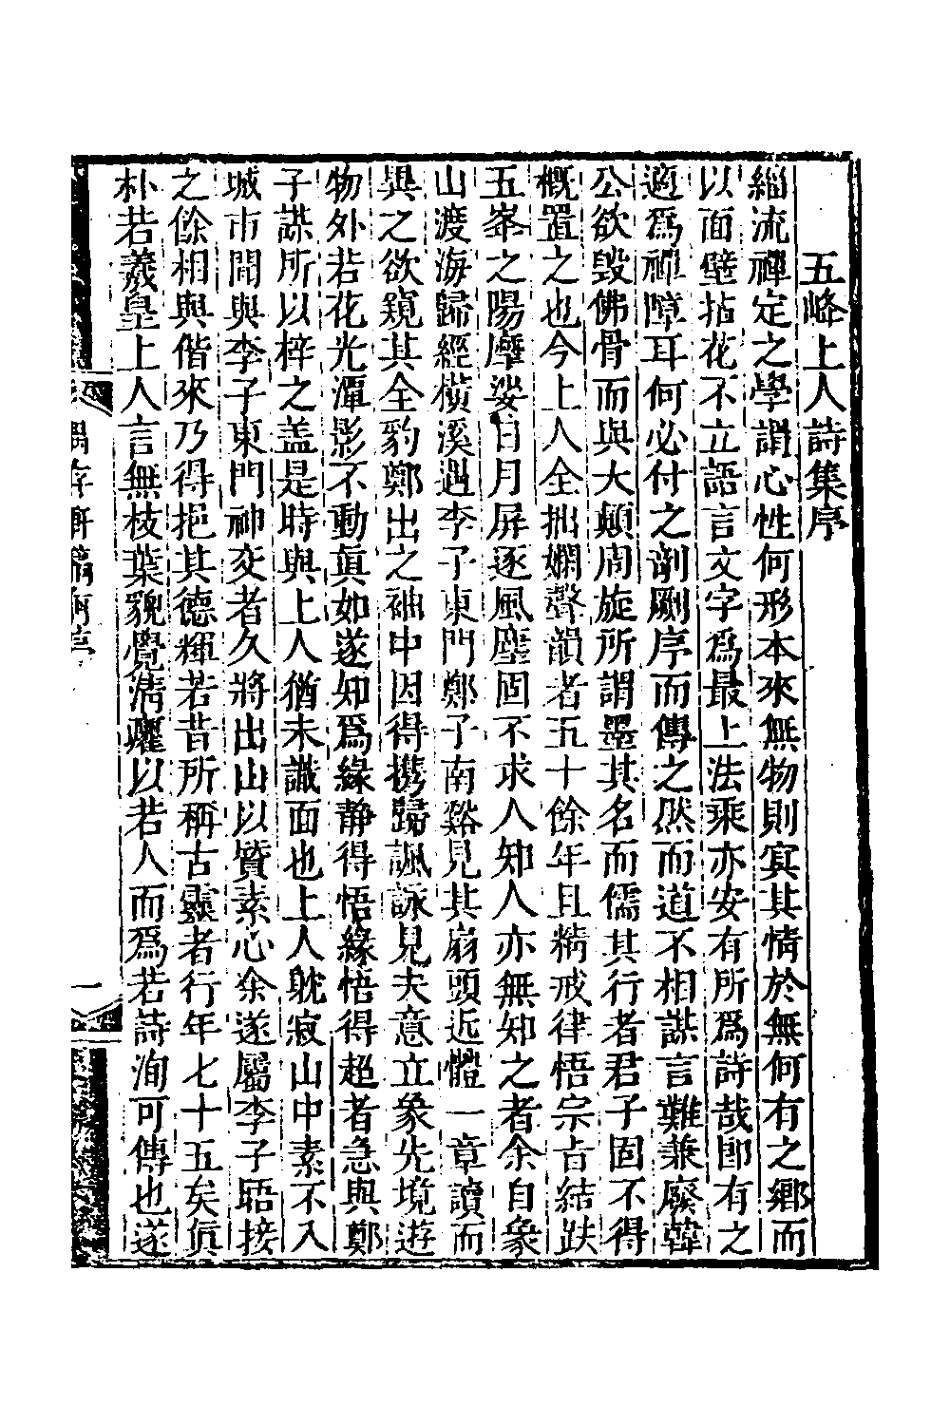 五峰上人詩集序
緇流禪定之學謂心性何形本來無物則寘其情於無何有之鄉而
以面壁拈花不立語言文字爲最上法乘亦安有所爲詩哉卽有之
適爲禪障耳何必付之剞劂序而傳之然而道不相謀言難兼廢韓
公欲毀佛骨而與大顛周旋所謂墨其名而儒其行者君子固不得
槪置之也今上人全拙嫺聲韻者五十餘年且精戒律悟宗旨結趺
五峯之陽摩娑日月屏逐風塵固不求人知人亦無知之者余自象
山渡海歸經橫溪遇李子東門鄭子南谿見其扇頭近體一章讀而
異之欲窺其全豹鄭出之袖中因得携歸諷詠見夫意立象先境遊
物外若花光潭影不動眞如遂知爲緣靜得悟緣悟得超者急與鄭
子謀所以梓之盖是時與上人猶未識面也上人躭寂山中素不入
城市間與李子東門神交者久將出山以質素心余遂屬李子晤接
之餘相與偕來乃得挹其德輝若昔所稱古靈者行年七十五矣眞
朴若羲皇上人言無枝葉貌覺淸癯以若人而爲若詩洵可傳也遂
寓存軒稿 序 一